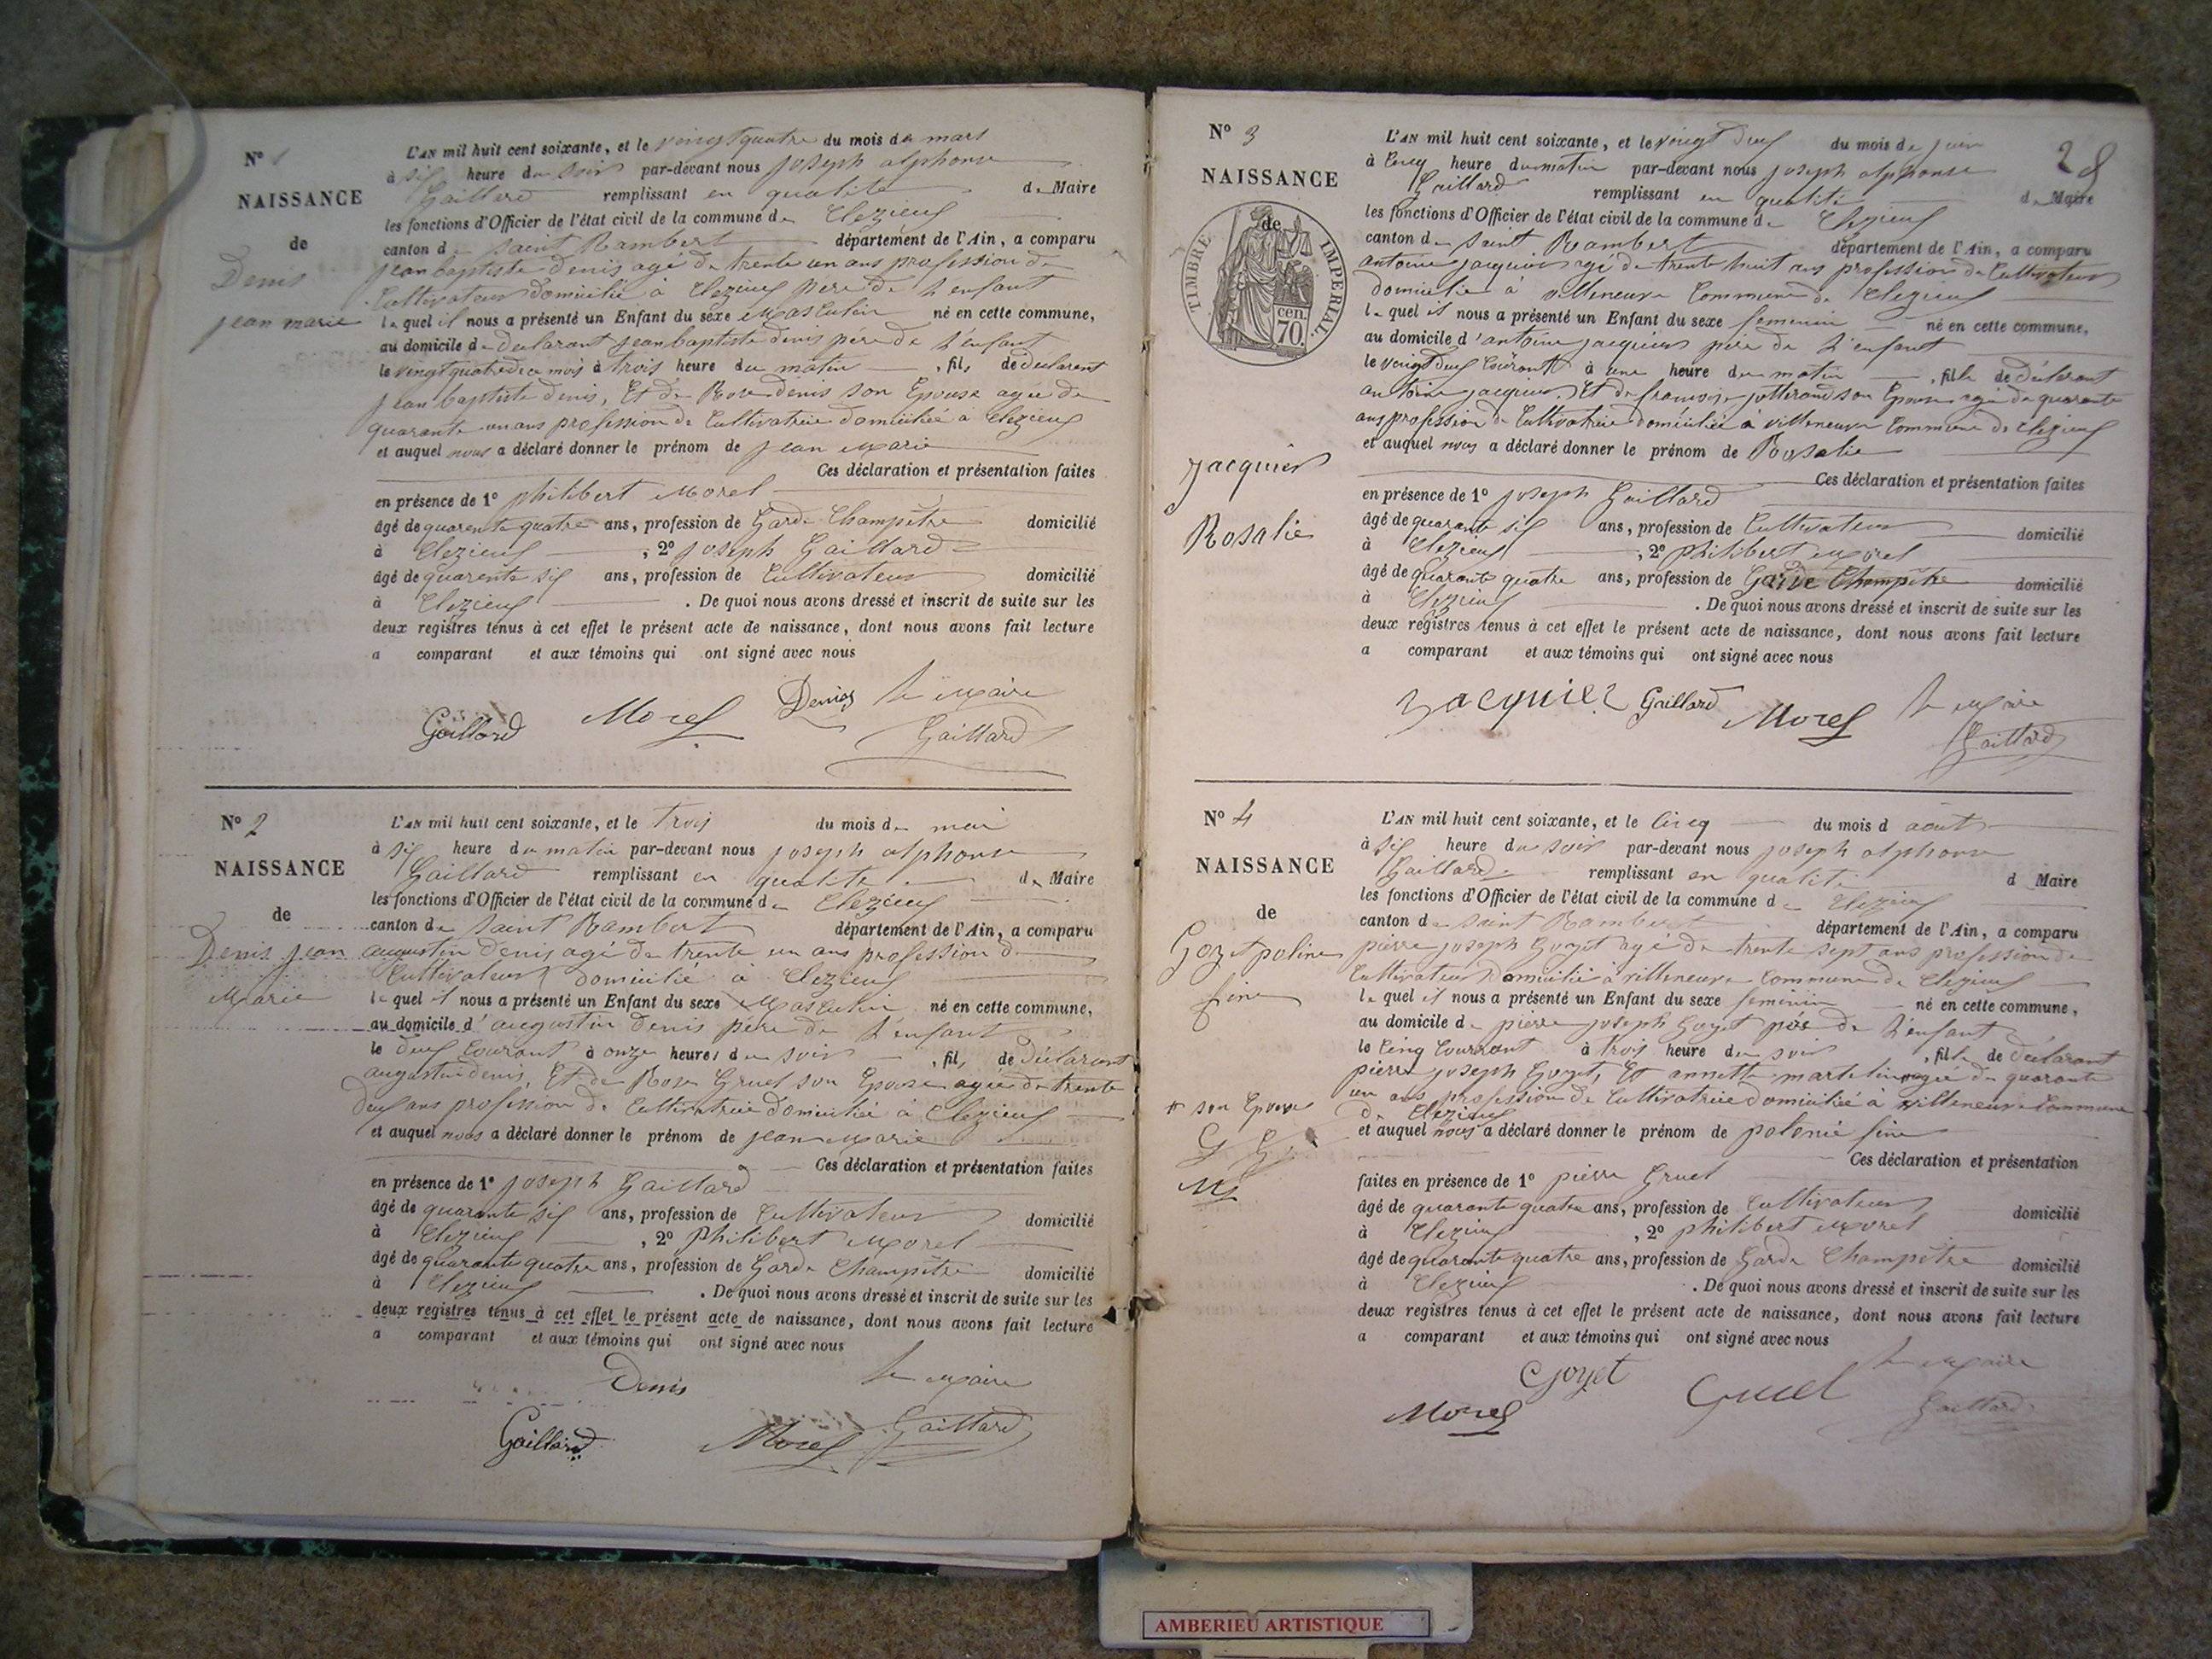 N° 1
NAISSANCE
de
Denis
jean marie
L'AN mil huit cent soixante, et le vingt quatre du mois de mars
à six heure du soir par-devant nous joseph alphonse
Gaillard remplissant en qualité de Maire
les fonctions d'Officier de l'état civil de la commune de Clezieux
canton de saint Rambert département de l'Ain, a comparu
jean baptiste denis agé de trente un ans profession de
Cultivateur domicilié à Clezieux pere de l'enfant
le quel il nous a présenté un Enfant du sexe Masculin né en cette commune,
au domicile de declarant jean baptiste denis père de l'enfant
le vingt quatre du mois à trois heure du matin, fils de declarent
jean baptiste denis, Et de Rose denis son Epouse agée de
quarante un ans profession de Cultivatrice domiciliée à Clezieux
et auquel nous a déclaré donner le prénom de jean Marie
Ces déclaration et présentation faites
en présence de 1° philibert Morel
âgé de quarente quatre ans, profession de Garde Champêtre domicilié
à Clezieux, 2° joseph Gaillard
âgé de quarente six ans, profession de Cultivateur domicilié
à Clezieux. De quoi nous avons dressé et inscrit de suite sur les
deux registres tenus à cet effet le présent acte de naissance, dont nous avons fait lecture
a comparant et aux témoins qui ont signé avec nous
Gaillard Morel Denis le Maire
Gaillard
N° 2
NAISSANCE
de
Denis jean
Marie
L'AN mil huit cent soixante, et le trois du mois de mai
à six heure du matin par-devant nous joseph alphonse
Gaillard remplissant en qualité de Maire
les fonctions d'Officier de l'état civil de la commune de Clezieux
canton de saint Rambert département de l'Ain, a comparu
augustin denis agé de trente un ans profession de
Cultivateur domicilié à Clezieux
le quel il nous a présenté un Enfant du sexe Masculin né en cette commune,
au domicile d'augustin denis père de l'enfant
le deux Courant à onze heures du soir, fils de déclarant
augustin denis, Et de Rose Gruel son Epouse agée de trente
deux ans profession de Cultivatrice domiciliée à Clezieux
et auquel nous a déclaré donner le prénom de jean Marie
Ces déclaration et présentation faites
en présence de 1° joseph Gaillard
âgé de quarante six ans, profession de Cultivateur domicilié
à Clezieux, 2° philibert Morel
âgé de quarante quatre ans, profession de Garde Champêtre domicilié
à Clezieux. De quoi nous avons dressé et inscrit de suite sur les
deux registres tenus à cet effet le présent acte de naissance, dont nous avons fait lecture
a comparant et aux témoins qui ont signé avec nous
Denis le Maire
Gaillard Morel Gaillard
28
N° 3
NAISSANCE
de
TIMBRE IMPERIAL
70 cen.
jacquier
Rosalie
L'AN mil huit cent soixante, et le vingt deux du mois de juin
à Cinq heure du matin par-devant nous joseph alphonse
Gaillard remplissant en qualité de Maire
les fonctions d'Officier de l'état civil de la commune de Clezieux
canton de saint Rambert département de l'Ain, a comparu
antoine jacquier agé de trente huit ans profession de Cultivateur
domicilié à villeneuve Commune de Clezieux
le quel il nous a présenté un Enfant du sexe femenin né en cette commune,
au domicile d'antoine jacquier père de l'enfant
le vingt deux Courant à une heure du matin, fille de déclarant
antoine jacquier, Et de françoise jutterand son Epouse agé de quarante
ans profession de Cultivatrice domiciliée à villeneuve Commune de Clezieux
et auquel nous a déclaré donner le prénom de Rosalie
Ces déclaration et présentation faites
en présence de 1° joseph Gaillard
âgé de quarante six ans, profession de Cultivateur domicilié
à Clezieux, 2° philibert Morel
âgé de quarante quatre ans, profession de Garde Champêtre domicilié
à Clezieux. De quoi nous avons dressé et inscrit de suite sur les
deux registres tenus à cet effet le présent acte de naissance, dont nous avons fait lecture
a comparant et aux témoins qui ont signé avec nous
jacquier Gaillard Morel le Maire
Gaillard
N° 4
NAISSANCE
de
Goyet poline
fine
L'AN mil huit cent soixante, et le Cinq du mois d août
à six heure du soir par-devant nous joseph alphonse
Gaillard remplissant en qualité d Maire
les fonctions d'Officier de l'état civil de la commune de Clezieux
canton de saint Rambert département de l'Ain, a comparu
pierre joseph Goyet agé de trente sept ans profession de
Cultivateur domicilié à villeneuve Commune de Clezieux
le quel il nous a présenté un Enfant du sexe femenin né en cette commune,
au domicile de pierre joseph Goyet père de l'enfant
le Cinq Courrant à trois heure du soir, fille de déclarant
pierre joseph Goyet, Et annette martelin agée de quarante
un ans profession de Cultivatrice domiciliée à villeneuve Commune
de Clezieux
# son Epouse
G G
M
et auquel nous a déclaré donner le prénom de polonie fine
Ces déclaration et présentation
faites en présence de 1° pierre Gruel
âgé de quarante quatre ans, profession de Cultivateur domicilié
à Clezieux, 2° philibert Morel
âgé de quarante quatre ans, profession de Garde Champêtre domicilié
à Clezieux. De quoi nous avons dressé et inscrit de suite sur les
deux registres tenus à cet effet le présent acte de naissance, dont nous avons fait lecture
a comparant et aux témoins qui ont signé avec nous
Goyet le Maire
Morel Gruel Gaillard
AMBERIEU ARTISTIQUE